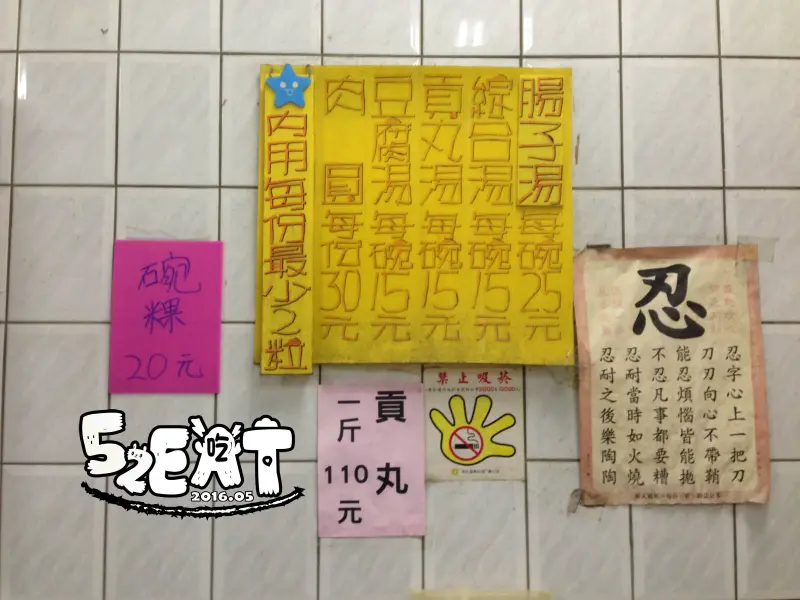 腸子湯 每碗25元
綜合湯 每碗15元
貢丸湯 每碗15元
豆腐湯 每碗15元
肉圓 每份30元
內用每份最少2粒
碗粿
20元
貢丸
一斤110元
禁止吸菸
忍
忍字心上一把刀
刀刃向心不帶鞘
能忍煩惱皆能拋
不忍凡事都要糟
忍耐當時如火燒
忍耐之後樂陶陶
52EAT
吃
2016.05